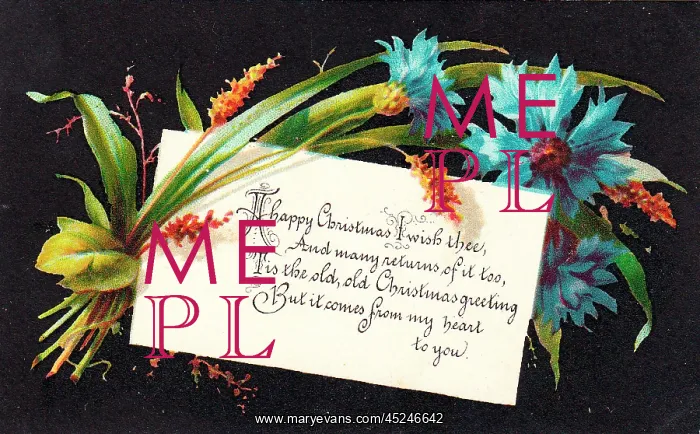 ME
PL
A happy Christmas I wish thee,
And many returns of it too,
Tis the old, old Christmas greeting
But it comes from my heart
to you.
ME
PL
www.maryevans.com/45246642